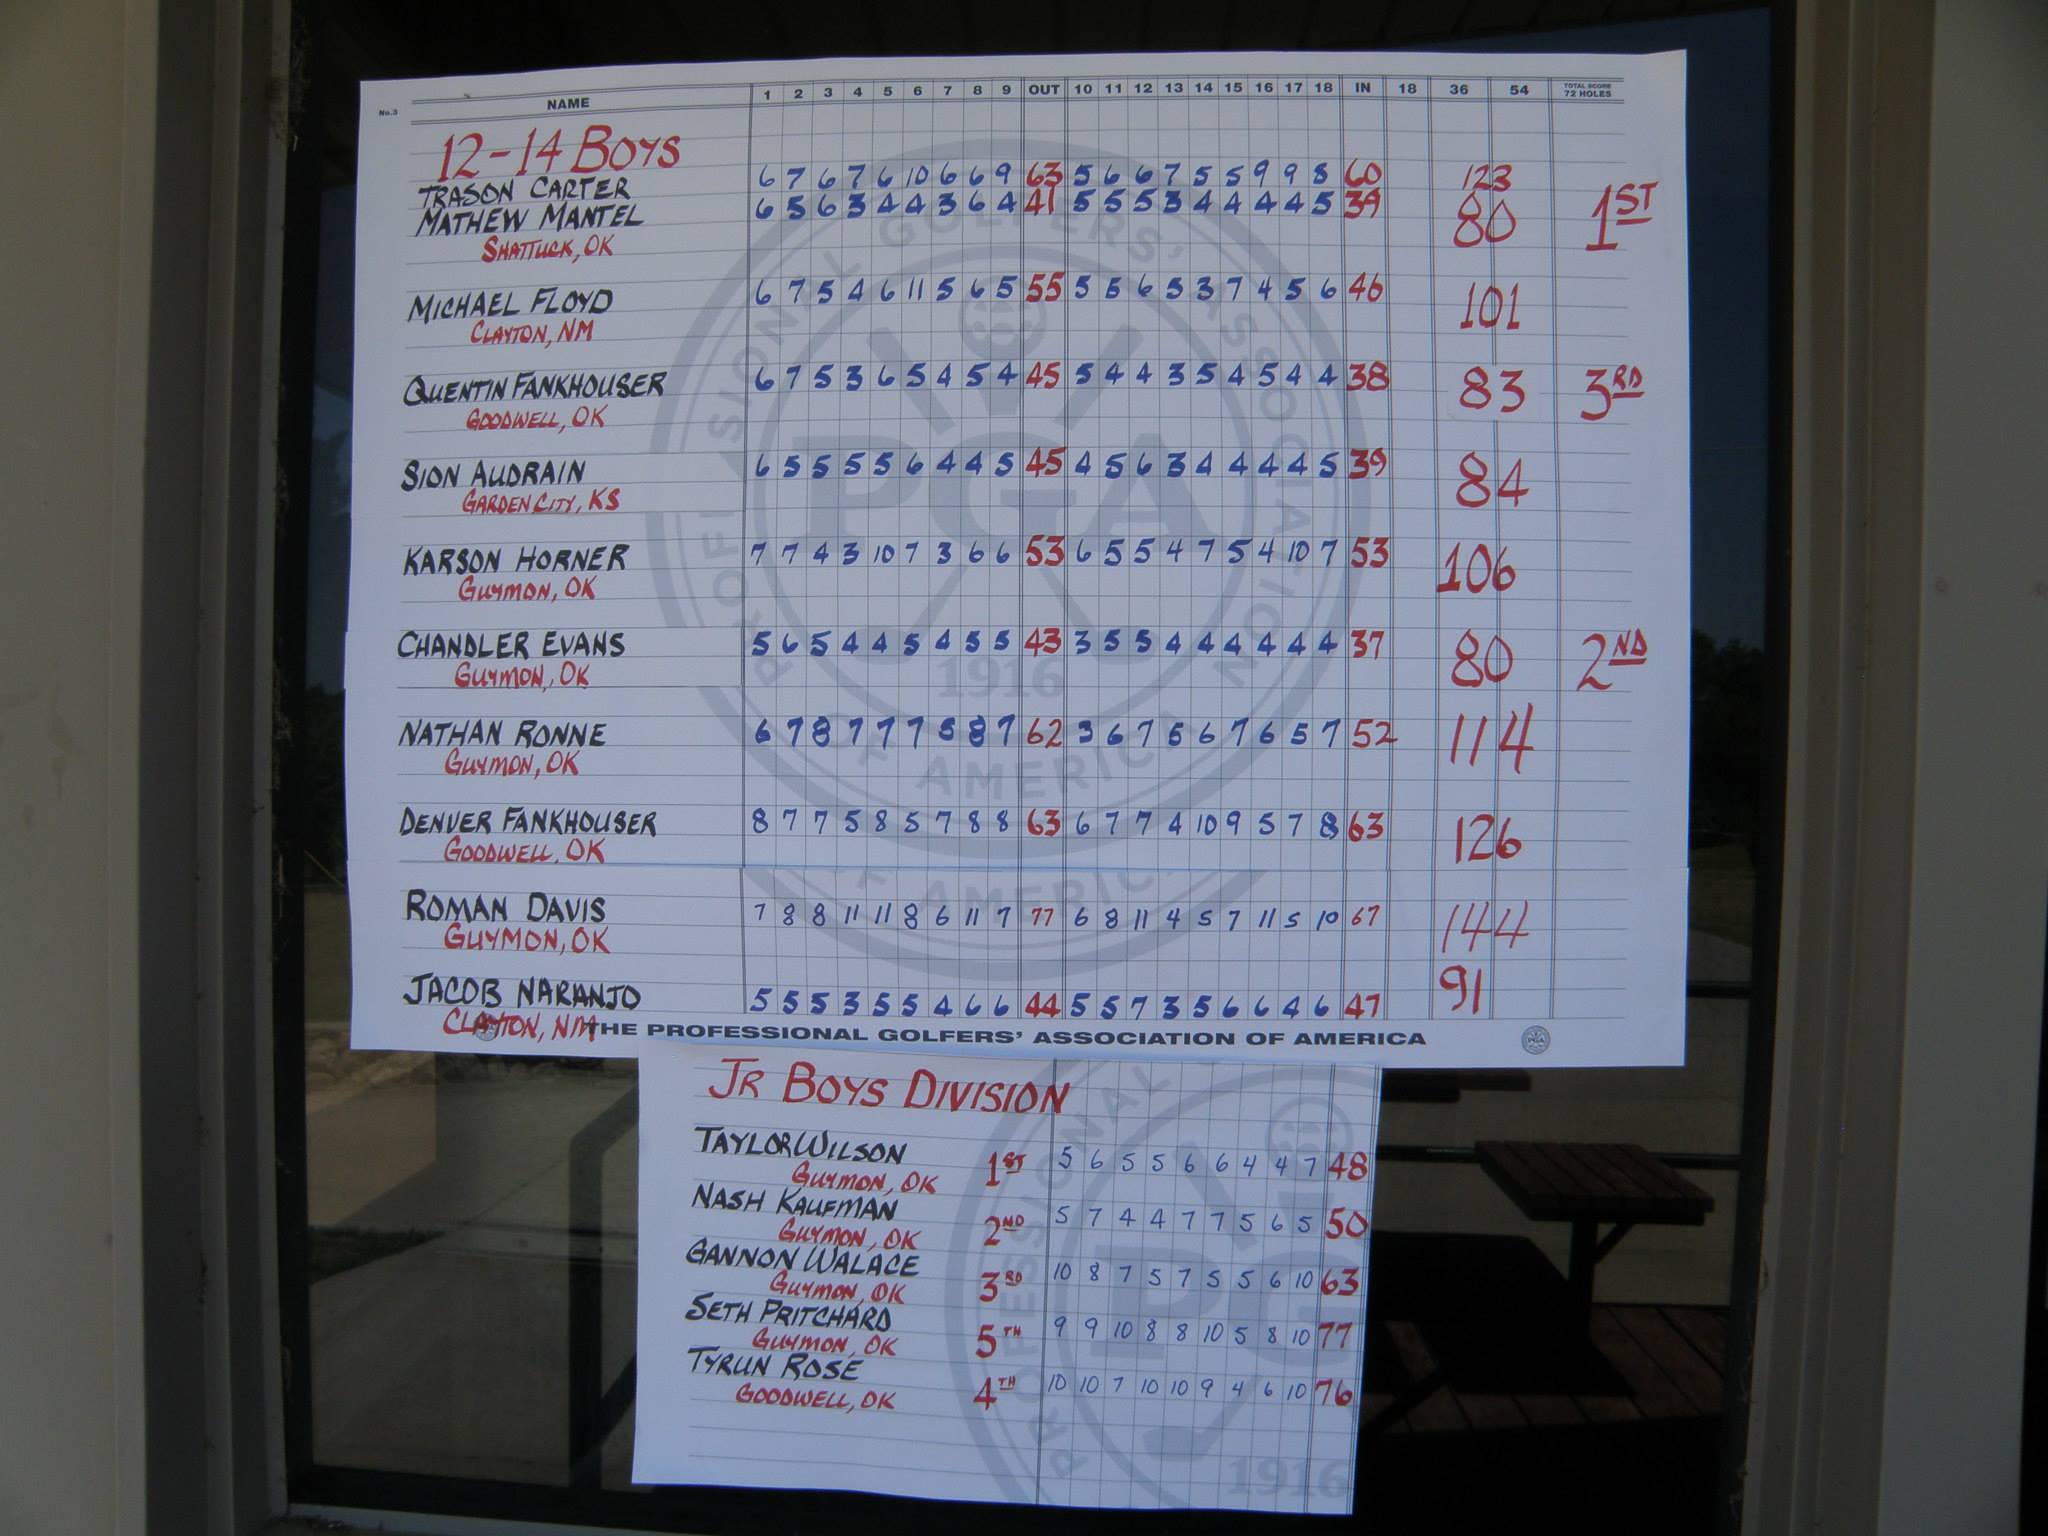 No.3 NAME 1 2 3 4 5 6 7 8 9 OUT 10 11 12 13 14 15 16 17 18 IN 18 36 54 TOTAL SCORE 72 HOLES
12-14 BOYS
TRASON CARTER 6 7 6 7 6 10 6 6 9 63 5 6 6 7 5 5 9 9 8 60 123
MATHEW MANTEL 6 5 6 3 4 4 3 6 4 41 5 5 5 3 4 4 4 4 5 39 80 1ST
SHATTUCK, OK
MICHAEL FLOYD 6 7 5 4 6 11 5 6 5 55 5 5 6 5 3 7 4 5 6 46 101
CLAYTON, NM
QUENTIN FANKHOUSER 6 7 5 3 6 5 4 5 4 45 5 4 4 3 5 4 5 4 4 38 83 3RD
GOODWELL, OK
SION AUDRAIN 6 5 5 5 5 6 4 4 5 45 4 5 6 3 4 4 4 4 5 39 84
GARDEN CITY, KS
KARSON HORNER 7 7 4 3 10 7 3 6 6 53 6 5 5 4 7 5 4 10 7 53 106
GUYMON, OK
CHANDLER EVANS 5 6 5 4 4 5 4 5 5 43 3 5 5 4 4 4 4 4 4 37 80 2ND
GUYMON, OK
NATHAN RONNE 6 7 8 7 7 7 5 8 7 62 3 6 7 5 6 7 6 5 7 52 114
GUYMON, OK
DENVER FANKHOUSER 8 7 7 5 8 5 7 8 8 63 6 7 7 4 10 9 5 7 8 63 126
GOODWELL, OK
ROMAN DAVIS 7 8 8 11 11 8 6 11 7 77 6 8 11 4 5 7 11 5 10 67 144
GUYMON, OK
JACOB NARANJO 5 5 5 3 5 5 4 6 6 44 5 5 7 3 5 6 6 4 6 47 91
CLAYTON, NM
THE PROFESSIONAL GOLFERS' ASSOCIATION OF AMERICA
PROFESSIONAL GOLFERS' ASSOCIATION OF AMERICA
PGA
1916
JR BOYS DIVISION
TAYLOR WILSON 1ST 5 6 5 5 6 6 4 4 7 48
GUYMON, OK
NASH KAUFMAN 2ND 5 7 4 4 7 7 5 6 5 50
GUYMON, OK
GANNON WALACE 3RD 10 8 7 5 7 5 5 6 10 63
GUYMON, OK
SETH PRITCHARD 5TH 9 9 10 8 8 10 5 8 10 77
GUYMON, OK
TYRUN ROSE 4TH 10 10 7 10 10 9 4 6 10 76
GOODWELL, OK
1916